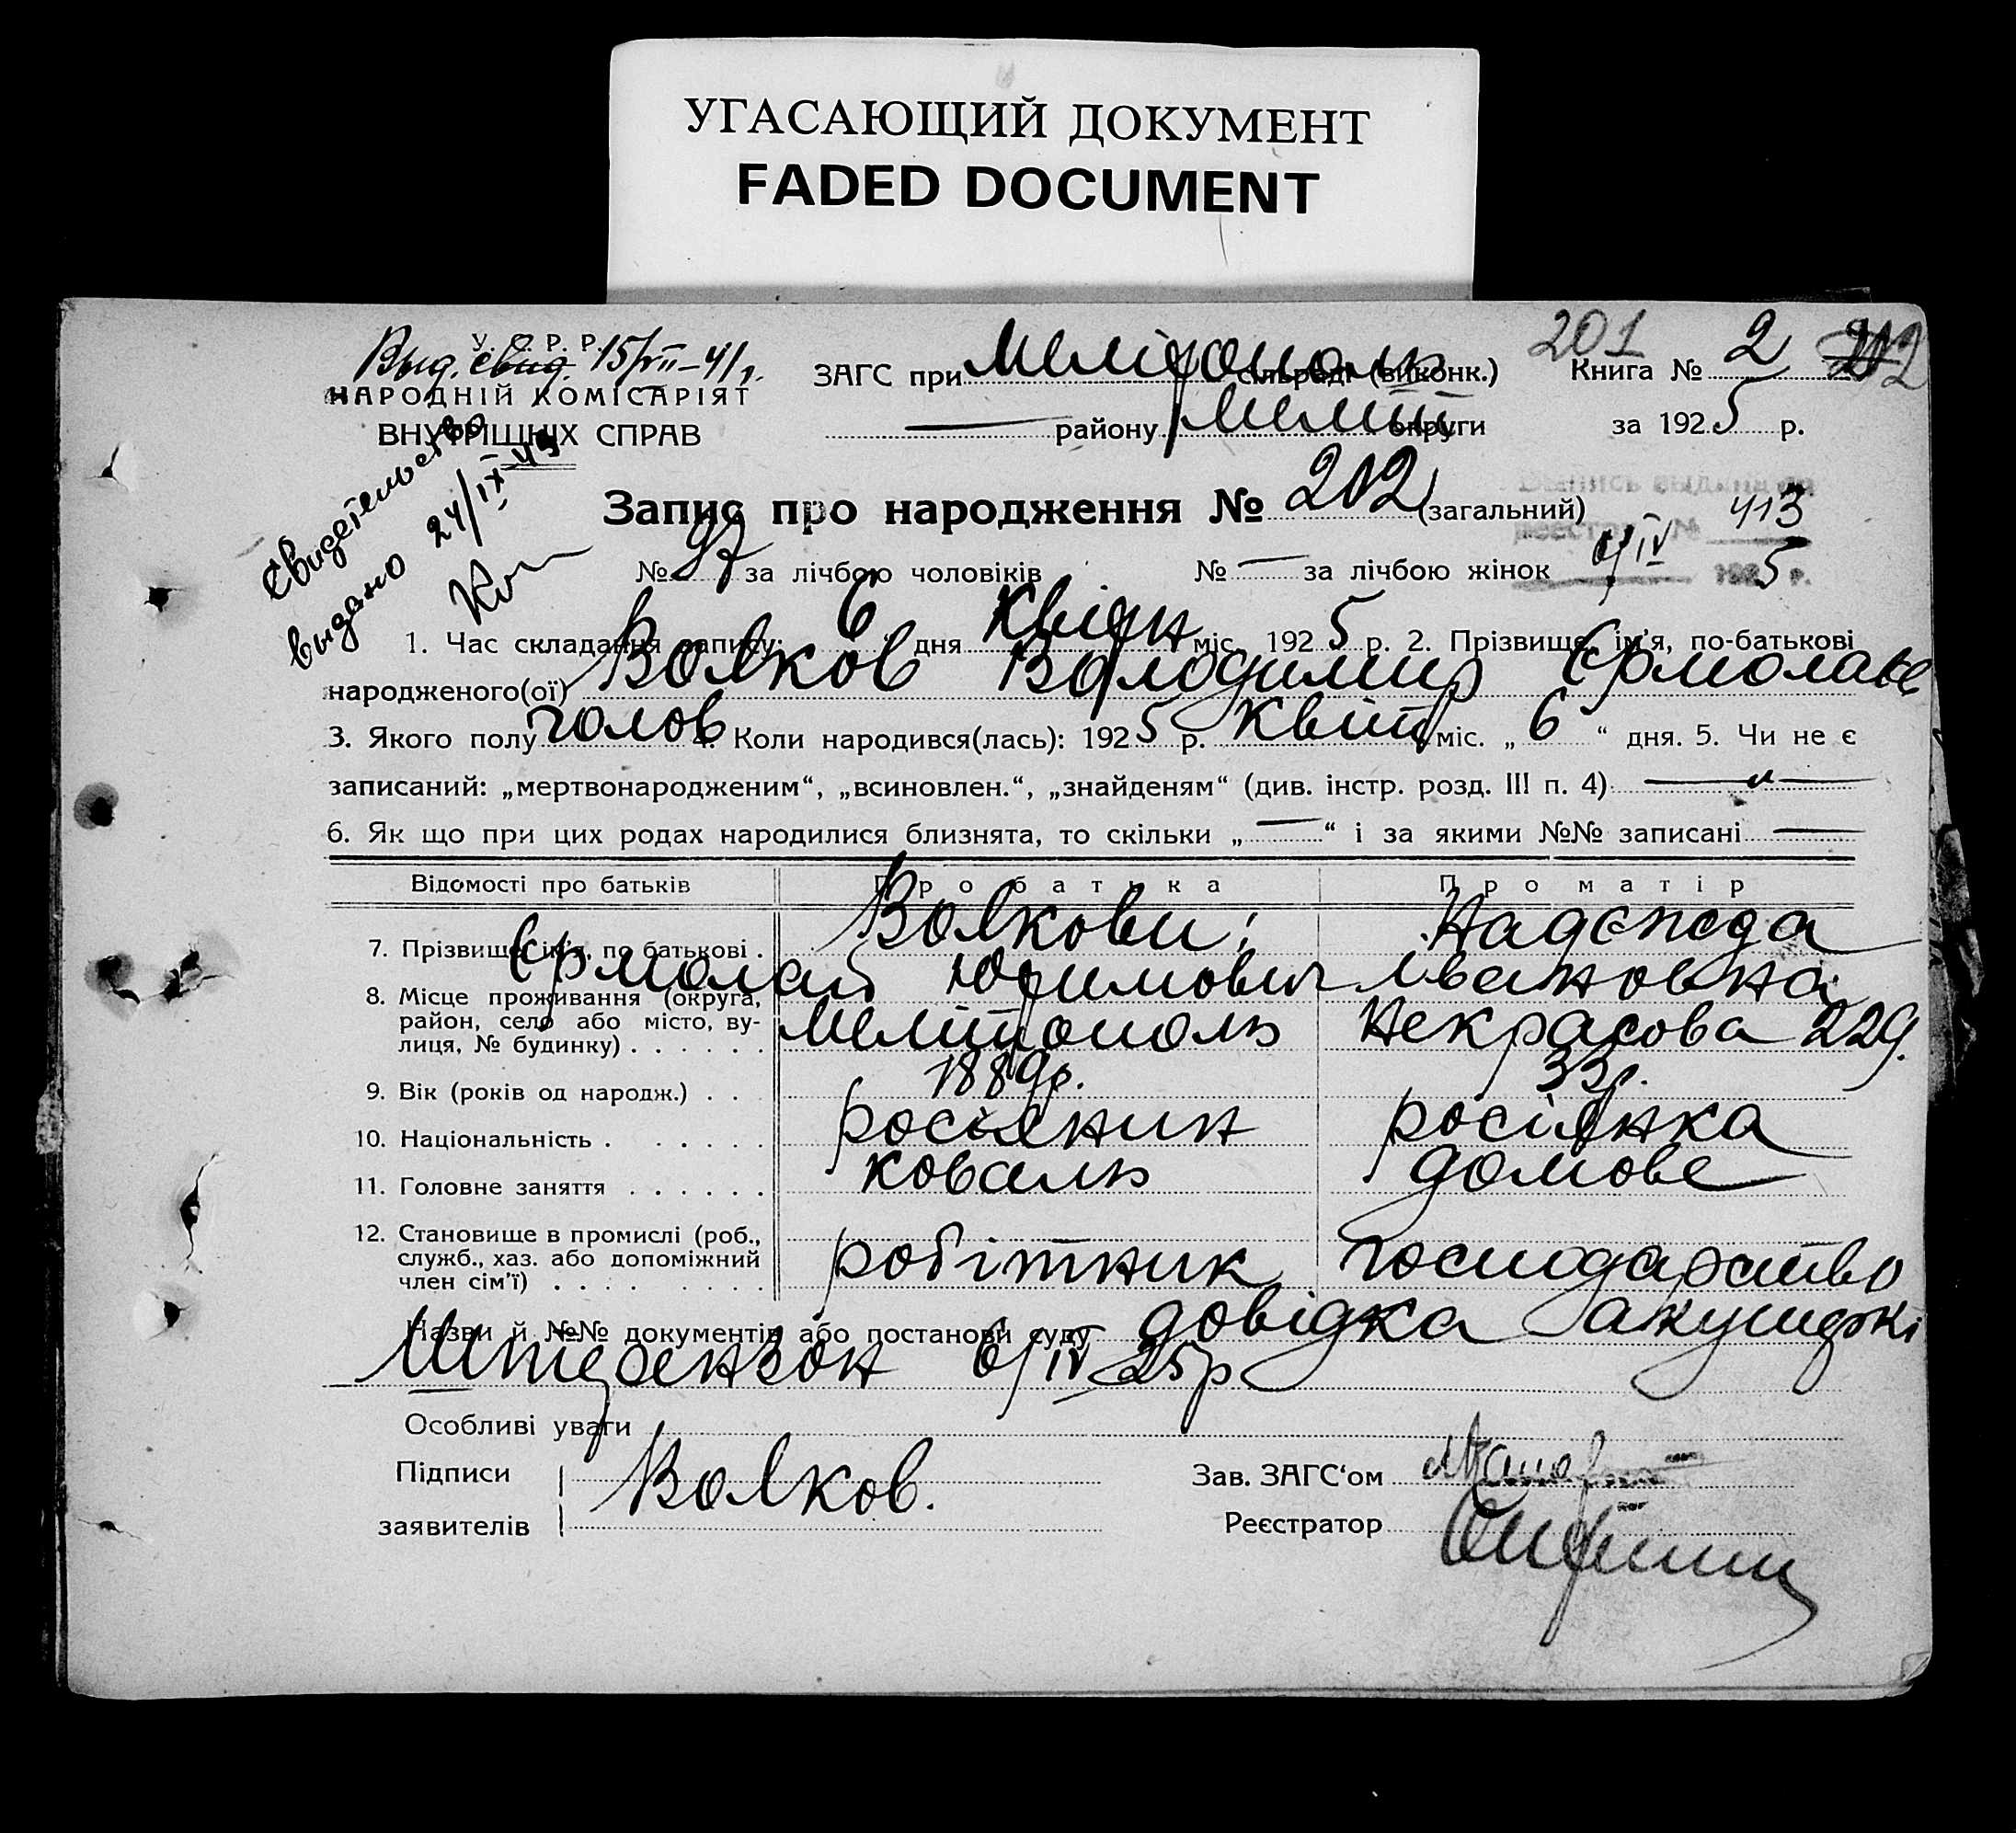 УГАСАЮЩИЙ ДОКУМЕНТ
FADED DOCUMENT
У. С. Р. Р.
Выд. свид. 15/VII-41 г.
НАРОДНІЙ КОМІСАРІЯТ
ВНУТРІШНІХ СПРАВ
Свидетельство
выдано 24/IX-45
ЗАГС при Мелітополь сільраді (виконк.)
— району Меліт округи
201
Книга № 2 202
за 1925 р.
Запис про народження № 202 (загальний)
Запись выдана
реестр № 413
6/IV 1925 р.
№ 97 за лічбою чоловіків № — за лічбою жінок
1. Час складання запису: 6 дня Квітн міс. 1925 р. 2. Прізвище, ім'я, по-батькові
народженого(ої) Волков Володимир Єрмолаєв
3. Якого полу чолов 4. Коли народився(лась): 1925 р. Квітн міс. „ 6 “ дня. 5. Чи не є
записаний: „мертвонародженим“, „всиновлен.“, „знайденям“ (див. інстр. розд. III п. 4)
6. Як що при цих родах народилися близнята, то скільки „ — “ і за якими №№ записані —
Відомості про батьків Про батька Про матір
7. Прізвище, ім'я, по батькові . Волкови: Надєжда
Єрмолай Юхимович Івановна
8. Місце проживання (округа,
район, село або місто, ву-
лиця, № будинку) . . . . . . Мелітополь Некрасова 229.
9. Вік (років од народж.) . . 1889р. 33р.
10. Національність . . . . . . росіянин росіянка
11. Головне заняття . . . . . . коваль домове
12. Становище в промислі (роб.,
служб., хаз. або допоміжний
член сім'ї) . . . . . . . . робітник господарство
Назви й №№ документів або постанови суду довідка акушерки
Штерензон 6/IV 25р
Особливі уваги
Підписи
заявителів
Волков.
Зав. ЗАГС‘ом
Реєстратор